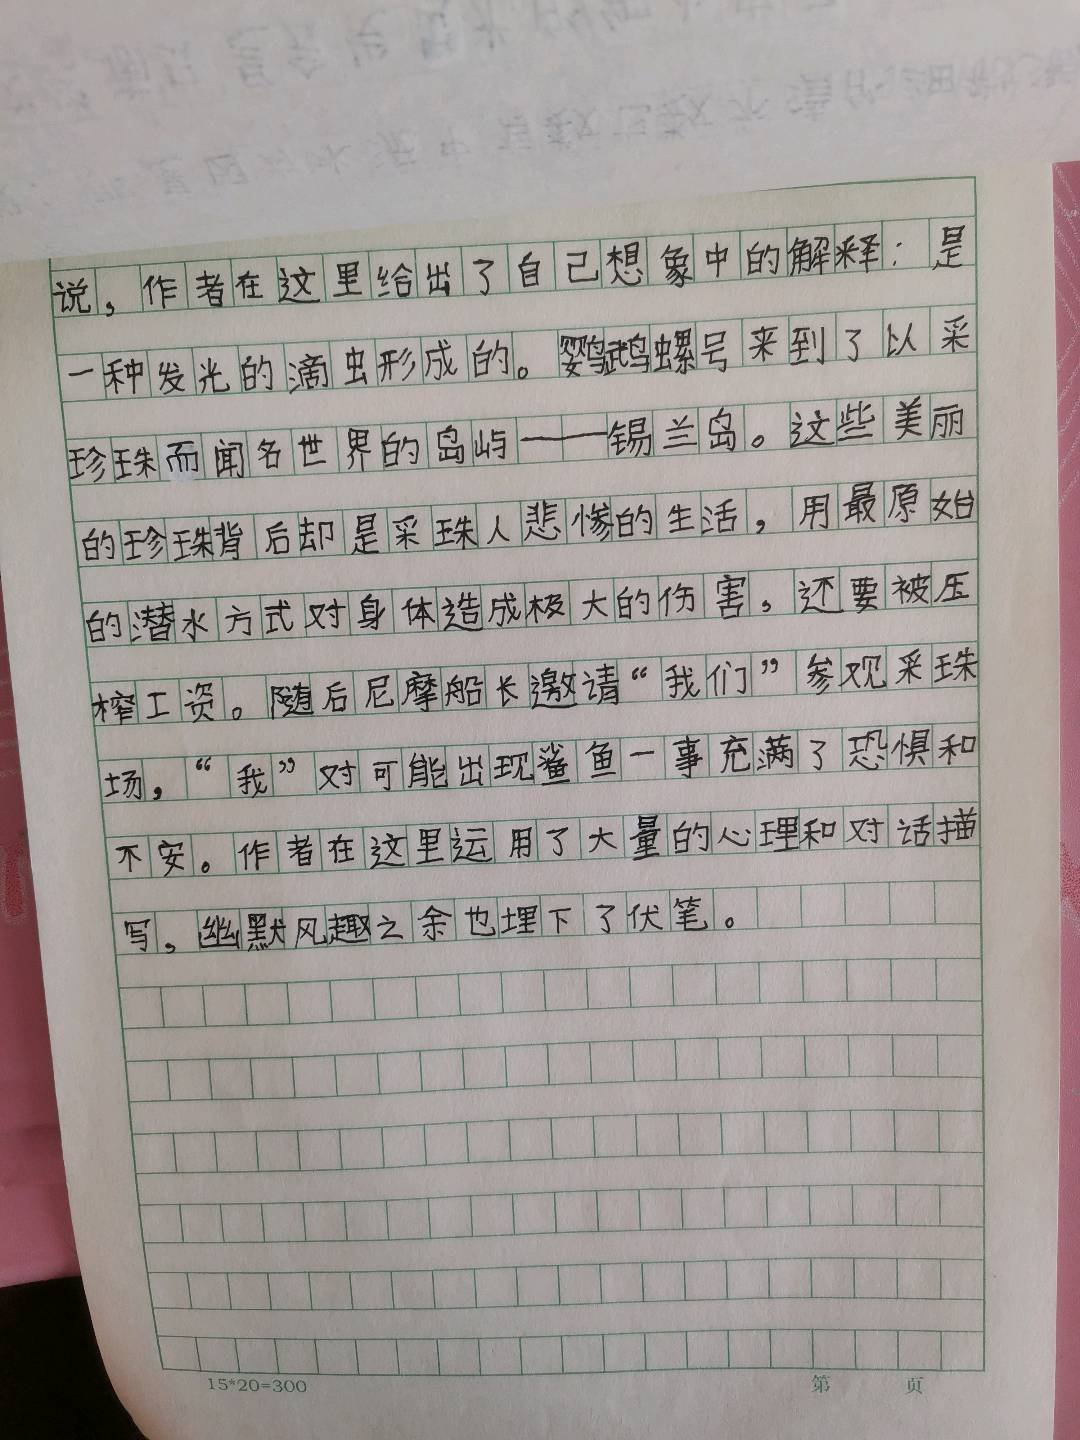 说，作者在这里给出了自己想象中的解释：是
一种发光的滴虫形成的。鹦鹉螺号来到了以采
珍珠而闻名世界的岛屿——锡兰岛。这些美丽
的珍珠背后却是采珠人悲惨的生活，用最原始
的潜水方式对身体造成极大的伤害，还要被压
榨工资。随后尼摩船长邀请“我们”参观采珠
场，“我”对可能出现鲨鱼一事充满了恐惧和
不安。作者在这里运用了大量的心理和对话描
写，幽默风趣之余也埋下了伏笔。
15*20=300
第 页